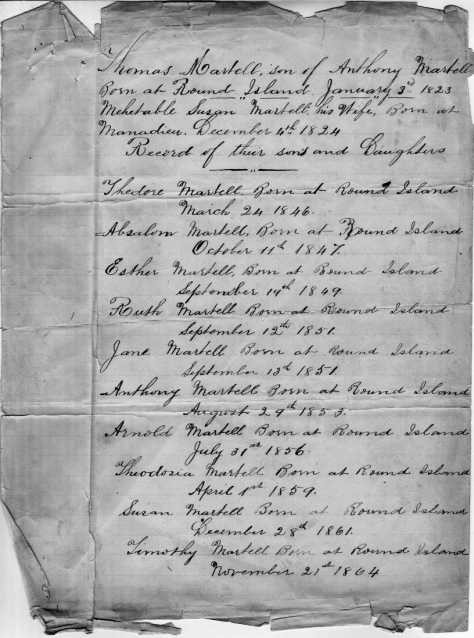 Thomas Martell, son of Anthony Martell
Born at Round Island January 3rd 1823
Mehetable Susan Martell, his Wife, Born at
Manadieu. December 4th 1824
Record of their sons and Daughters
Thedore Martell Born at Round Island
March 24 1846.
Absalom Martell, Born at Round Island
October 11th 1847.
Esther Martell, Born at Round Island
September 14th 1849.
Ruth Martell Born at Round Island
September 12th 1851.
Jane Martell Born at Round Island
September 13th 1851
Anthony Martell Born at Round Island
August 29th 1853.
Arnold Martell Born at Round Island
July 31st 1856.
Theodosia Martell Born at Round Island
April 1st 1859.
Susan Martell Born at Round Island
December 28th 1861.
Timothy Martell Born at Round Island
November 21st 1864